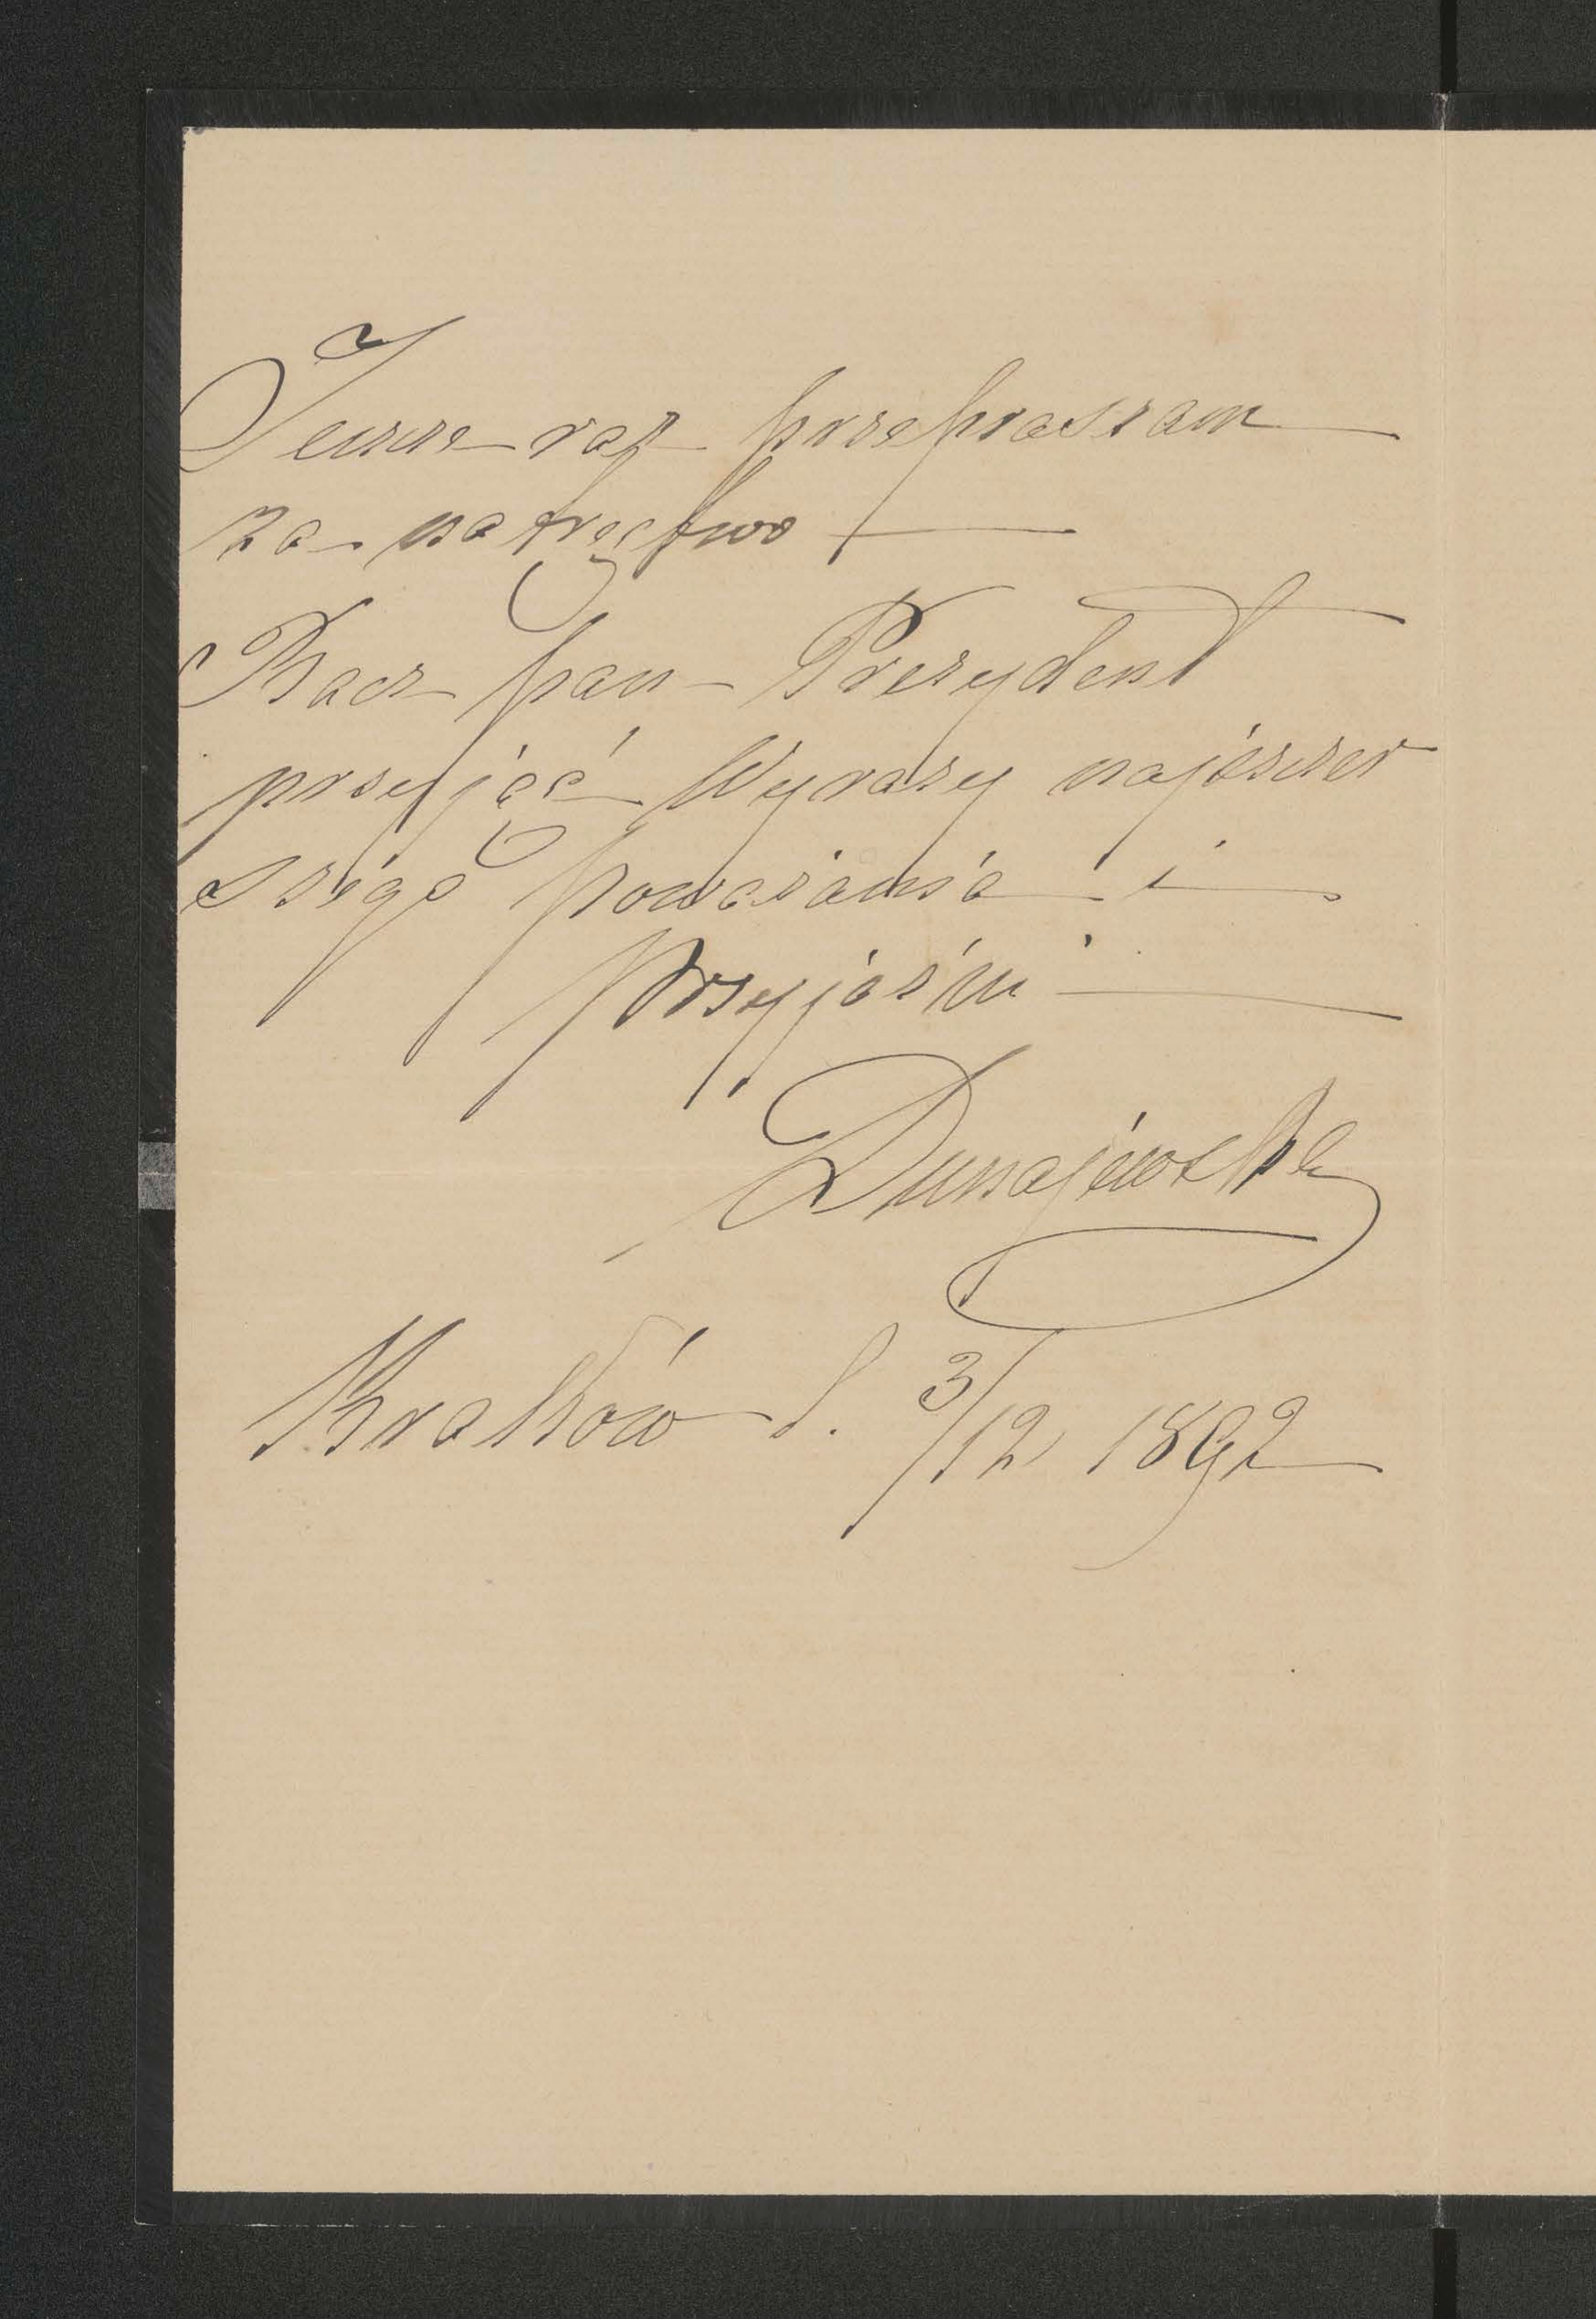 Jeszcze raz przepraszam
za natręctwo
Racz pan Prezydent
przyjąć Wyrazy najszczer
szégo poważania i
przyjaźni
Dunajewski
Kraków d. 3/12 1892